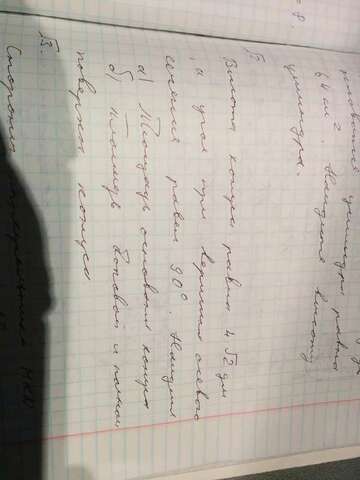 = 8.
цилиндра равна
6 4 м 2. Найдите высоту
цилиндра.
Высота конуса равна 4 √2 дм
, а угол при вершине осевого
сечения равен 90°. Найдите
а) Площадь основания конуса
б) площадь боковой и полной
поверхн конуса
√3.
Сторона